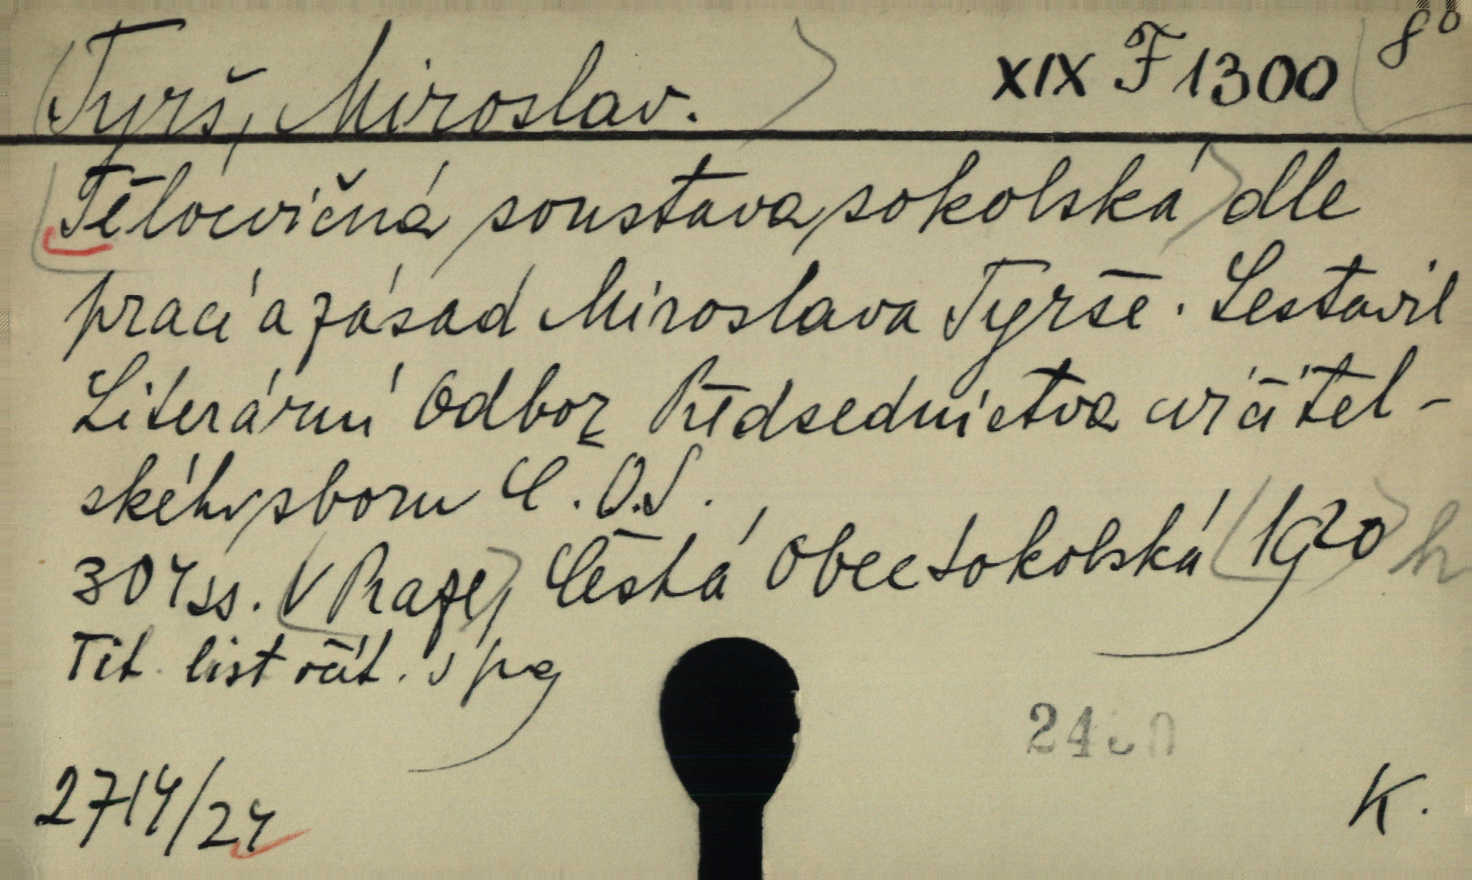 Tyrš, Miroslav. XIX F 1300 8°
Tělocvičná soustava sokolská dle
prací a zásad Miroslava Tyrše. Sestavil
Literární Odbor Předsednictva cvičitel-
ského sboru Č.O.S.
304 ss. V Praze, Česká Obec Sokolská 1920
Tit. list očít. s pag
2714/24 K.